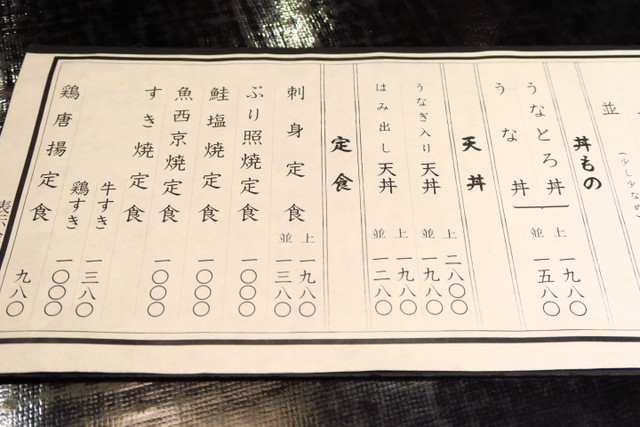 並
(少し少なめ)
丼もの
うなとろ丼 上 一九八〇
うな丼 並 一五八〇
天丼
うなぎ入り天丼 上 二八〇〇
並 一九八〇
はみ出し天丼 上 一九八〇
並 一二八〇
定食
刺身定食 上 一九八〇
並 一三八〇
ぶり照焼定食 一〇〇〇
鮭塩焼定食 一〇〇〇
魚西京焼定食 一〇〇〇
すき焼定食
牛すき 一三八〇
鶏すき 一〇〇〇
鶏唐揚定食 九八〇
表示